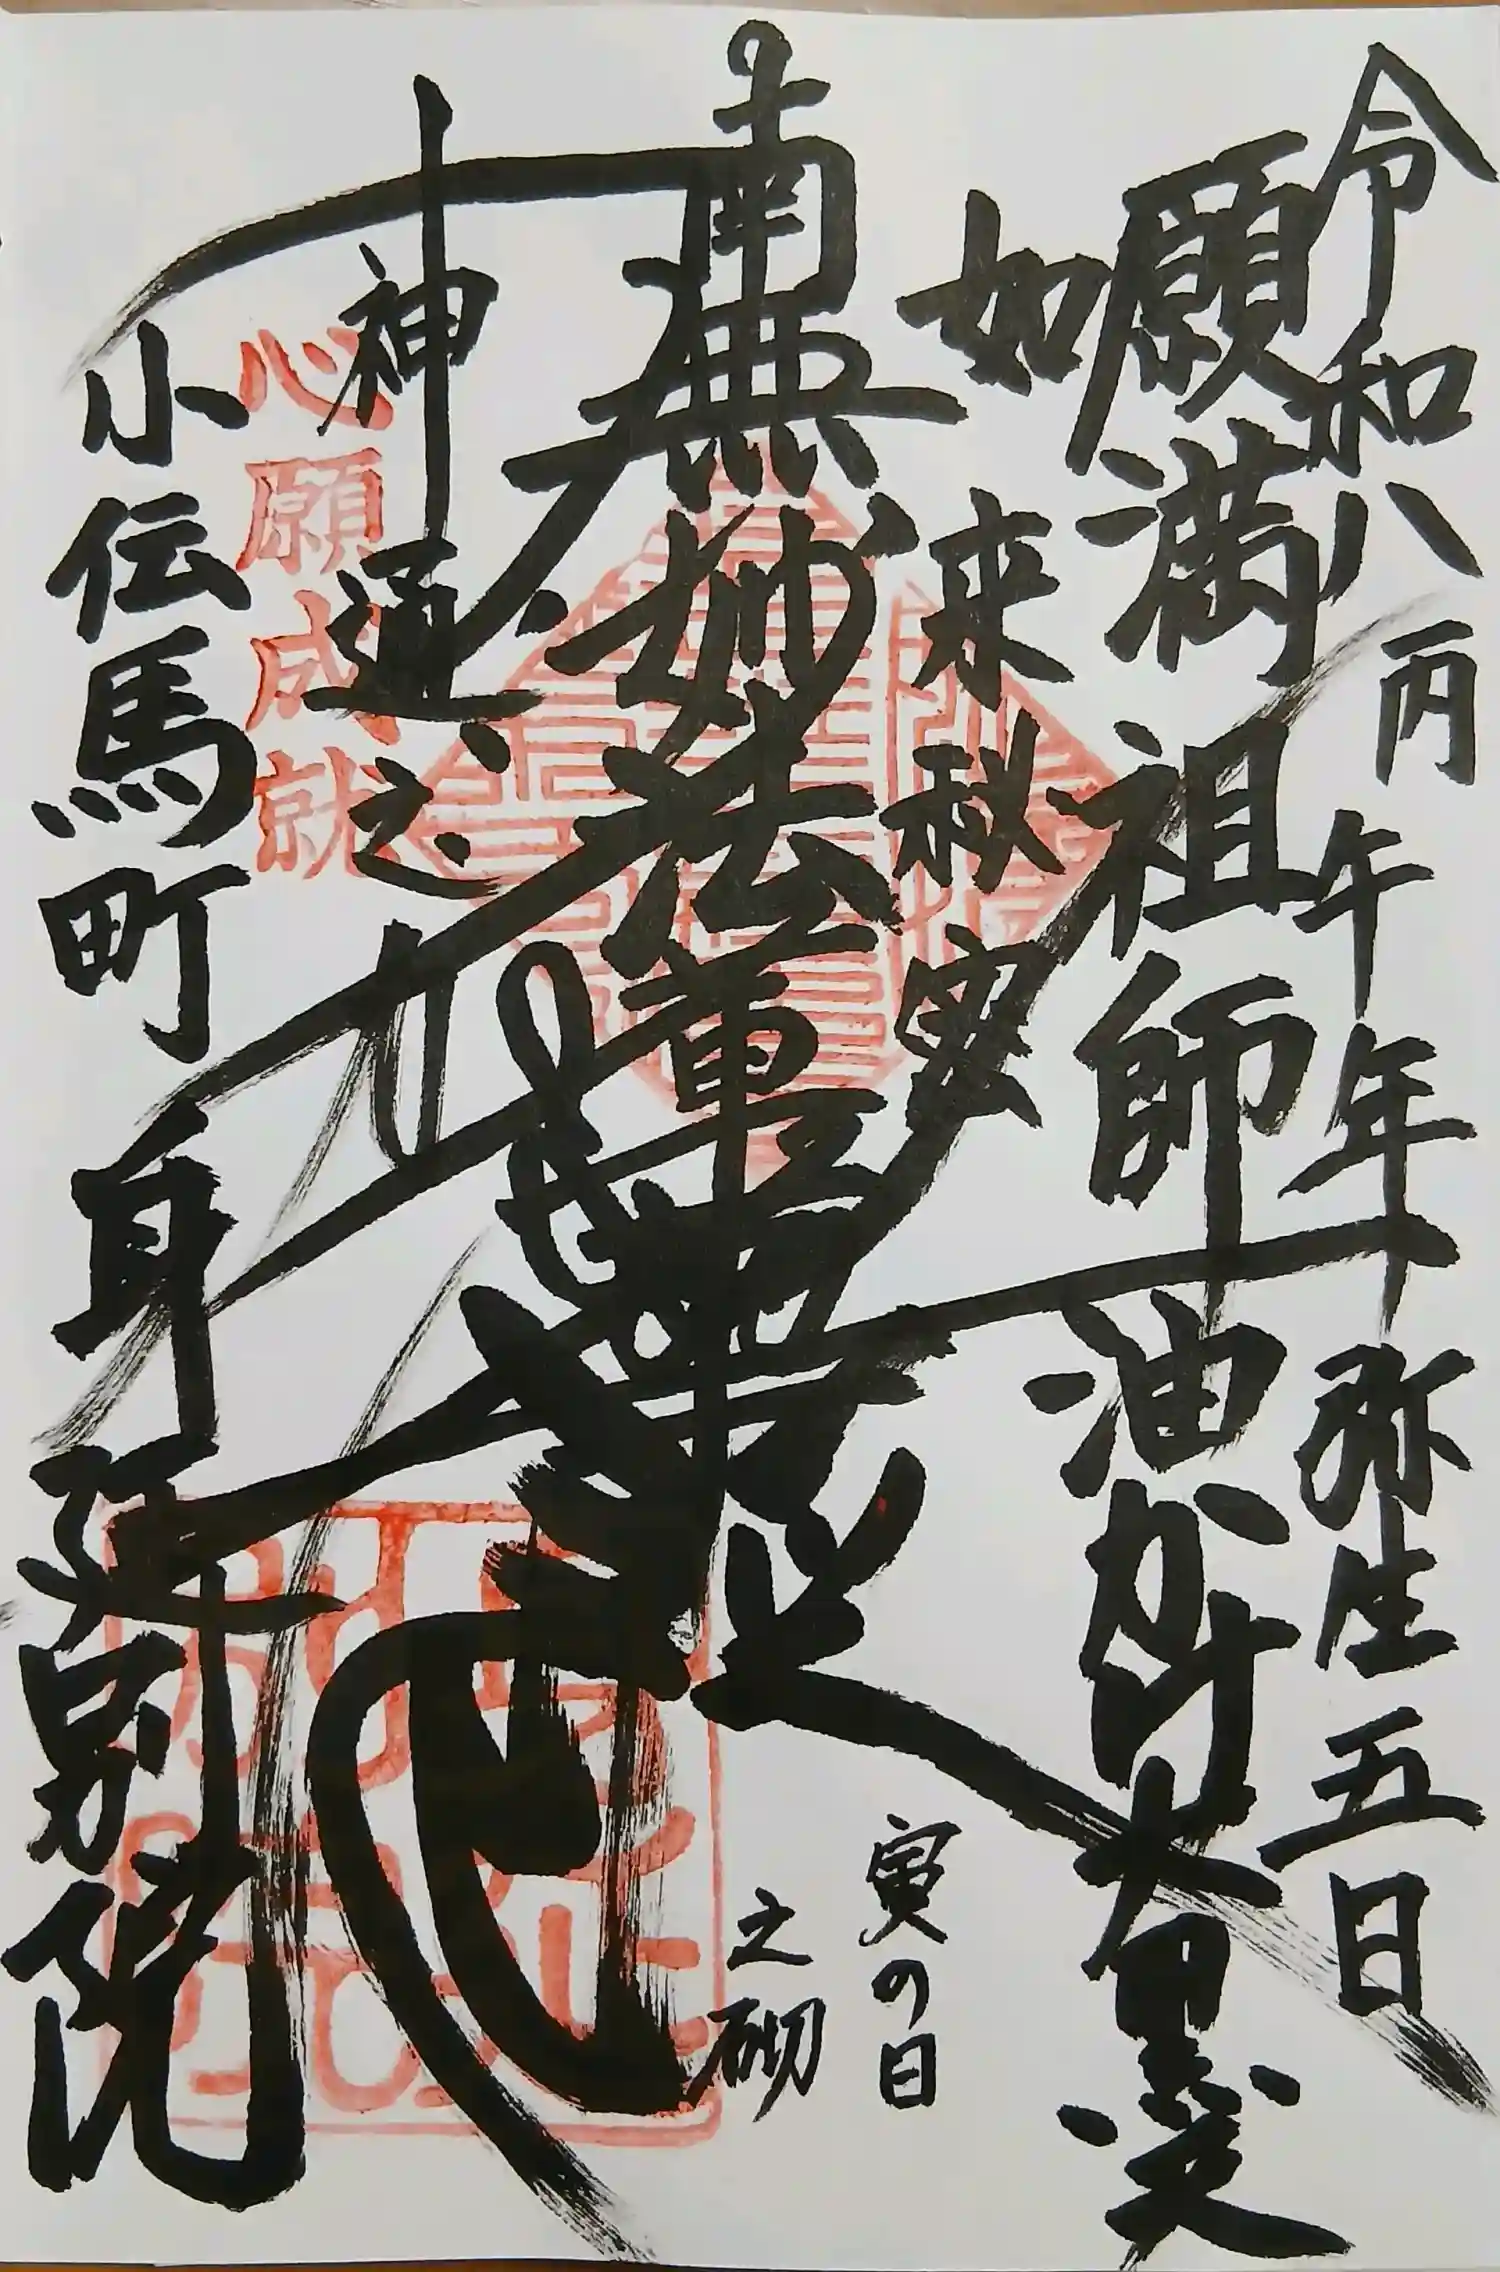 令和八丙午年弥生五日
願満祖師油かけ大黒天
如来秘密
寅の日
南無妙法蓮華経
之砌
神通之力
心願成就
小伝馬町身延別院